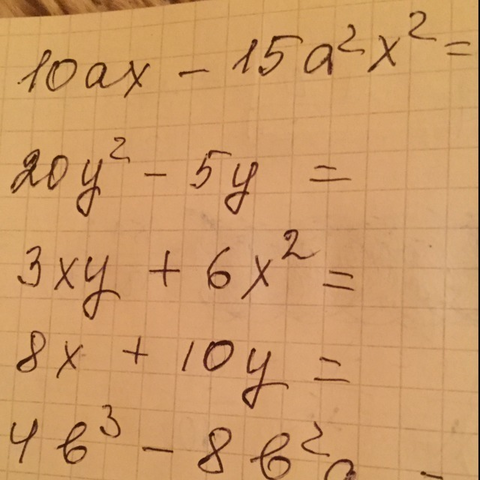 10ax - 15a²x² =
20y² - 5y =
3xy + 6x² =
8x + 10y =
4b³ - 8b²a =